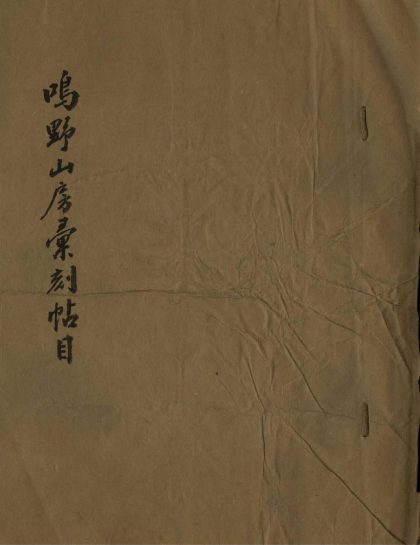 鳴野山房彙刻帖目